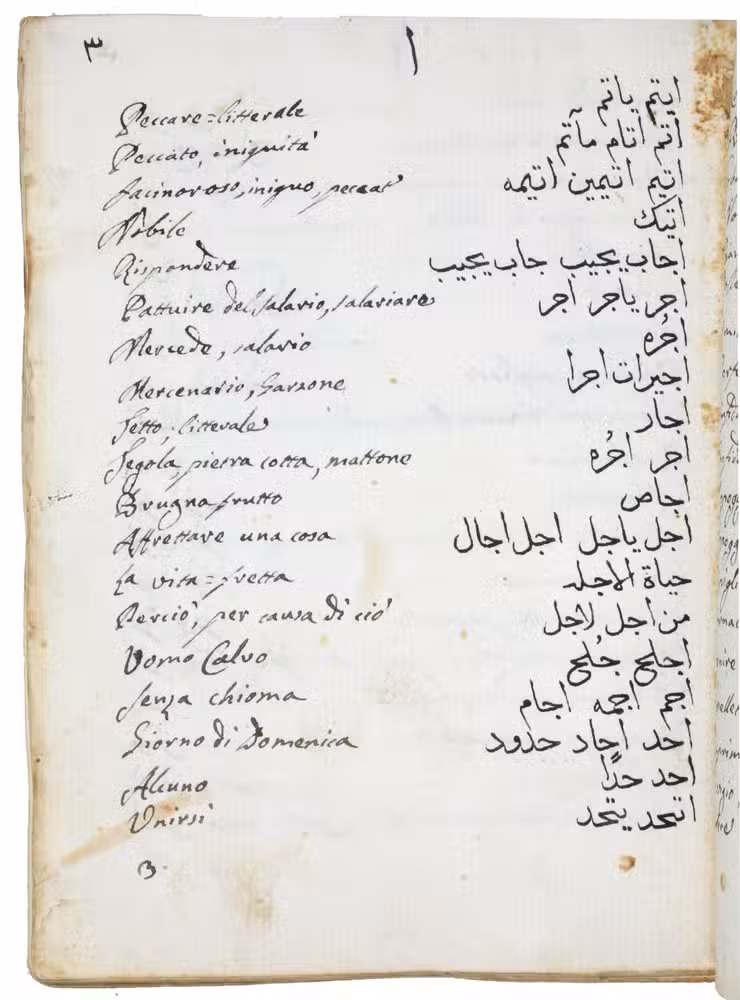 ٣ ا
Peccare = litterale ايتم ياتم
Peccato, iniquità اتم اتام مآتم
facinoroso, iniquo, peccat اتيم اتيمين اتيمه
Nobile اتيك
Rispondere اجاب يجيب جاب يجيب
Pattuire del salario, salariare اجر ياجر اجر
Mercede, salario اجُره
Mercenario, Garzone اجيرات اجرا
Tetto, litterale اجار
Tegola, pietra cotta, mattone اجر اجُره
Brugna frutto اجاص
Affrettare una cosa اجل ياجل اجل اجال
La vita = fretta حياة الاجله
Perciò, per causa di ciò من اجل لاجل
Uomo Calvo اجلح جُلح
Senza chioma اجم اجمه اجام
Giorno di Domenica احد احاد حدود
Alcuno احد حدًا
Unirsi اتحد يتحد
3